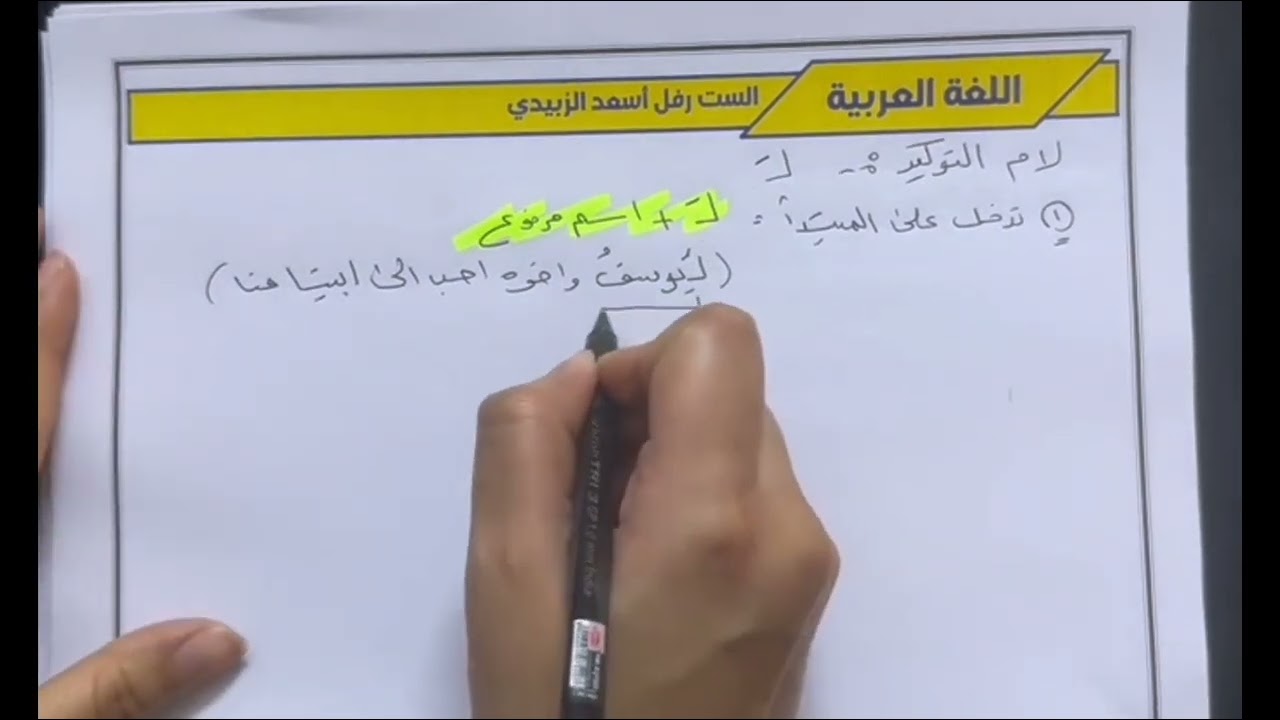 اللغة العربية
الست رفل أسعد الزبيدي
لام التوكيد :- لَـ
① تدخل على المبتدأ : لَـ + اسم مرفوع
(لَيوسفُ واخوه احب الى ابينا منا)